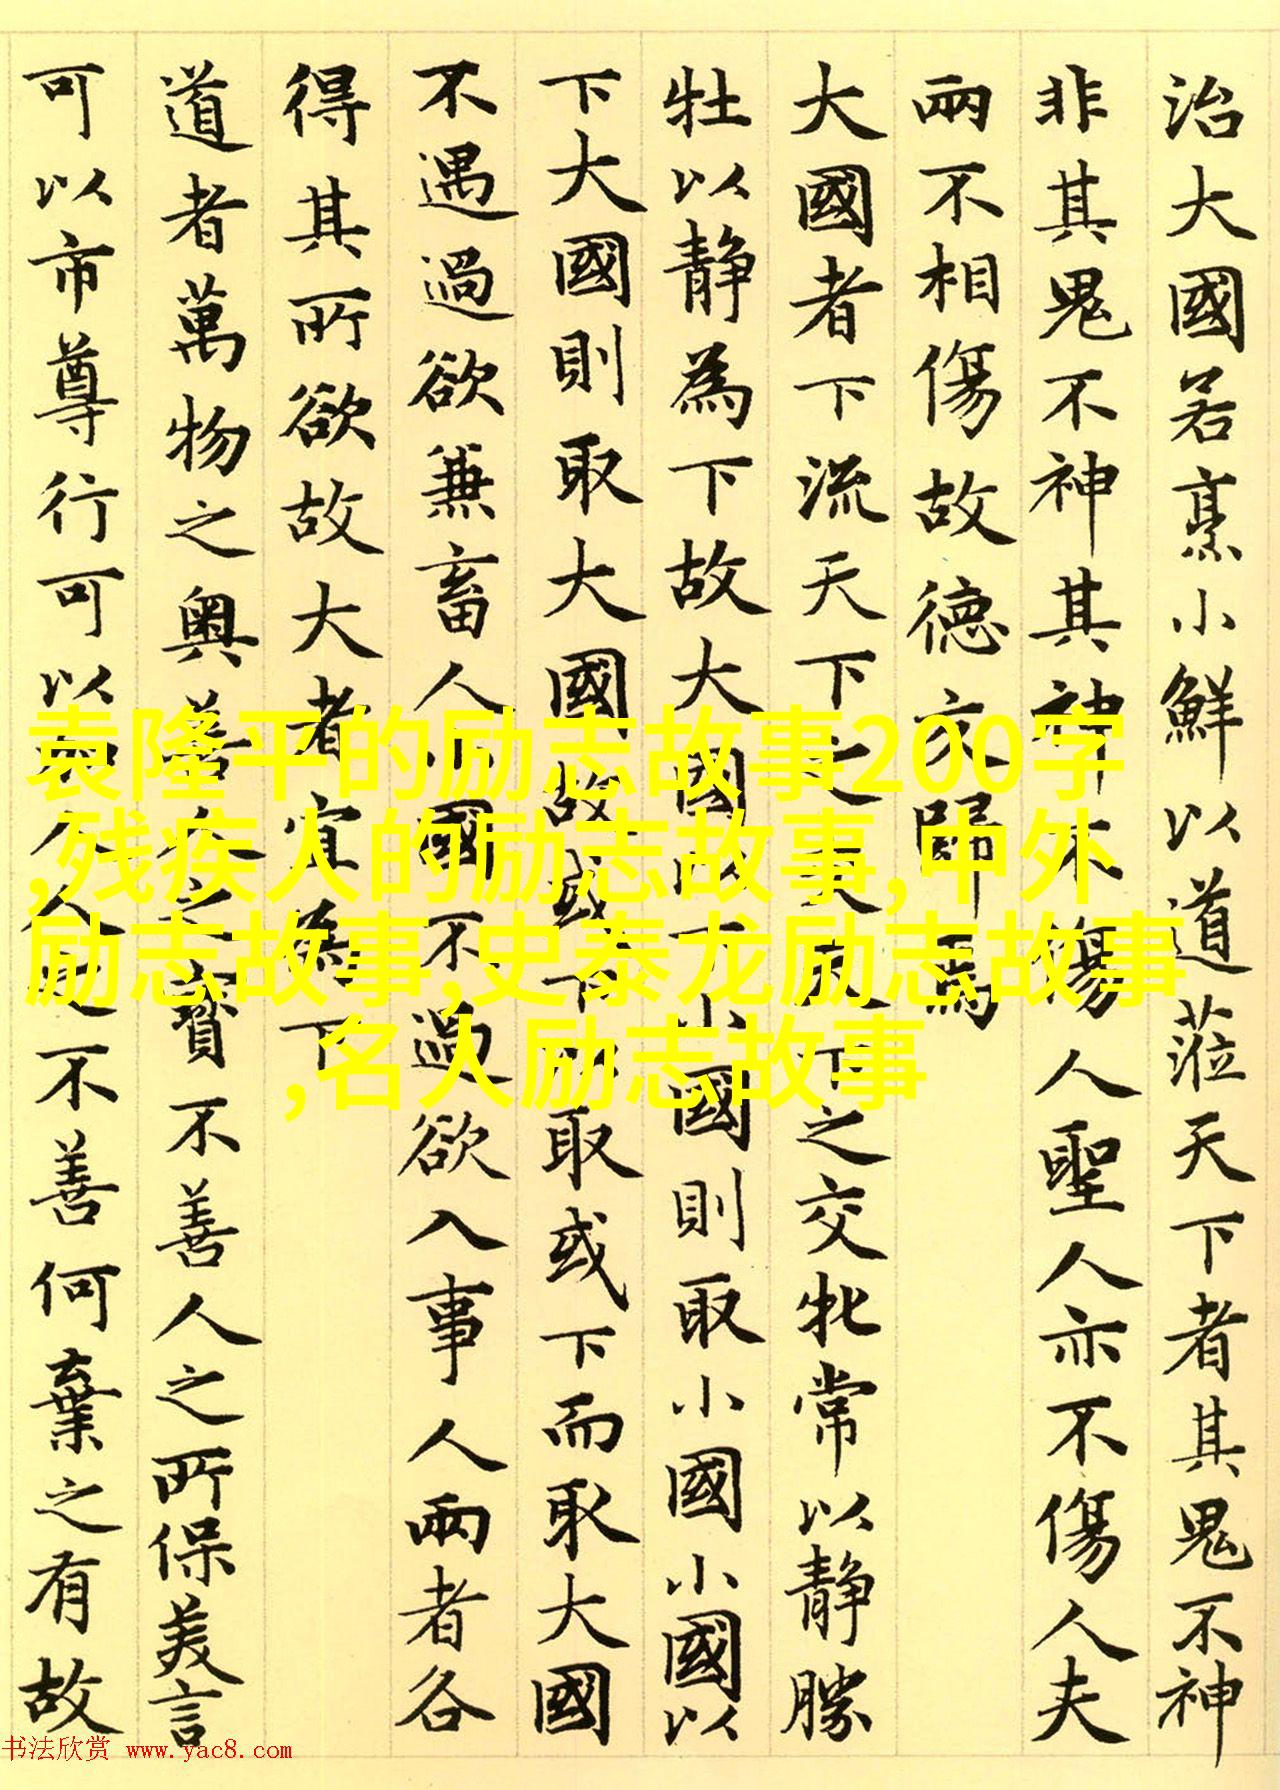 治大國若烹小鮮以道蒞天下者其鬼不神
非其鬼不神其神不傷人聖人亦不傷人夫
兩不相傷故德交歸焉
大國者下流天下之交天下之交牝常以靜勝
牡以靜為下故大國以下小國則取小國小國以
下大國則取大國故或下以取或下而取大國
不遇過欲兼畜人小國不過欲入事人兩者各
得其所欲故大者宜為下
道者萬物之奧善人之寶不善人之所保美言
可以市尊行可以加人人之不善何棄之有故
袁隆平的励志故事200字
,残疾人的励志故事,中外
励志故事,史泰龙励志故事
,名人励志故事
书法欣赏 www.yac8.com